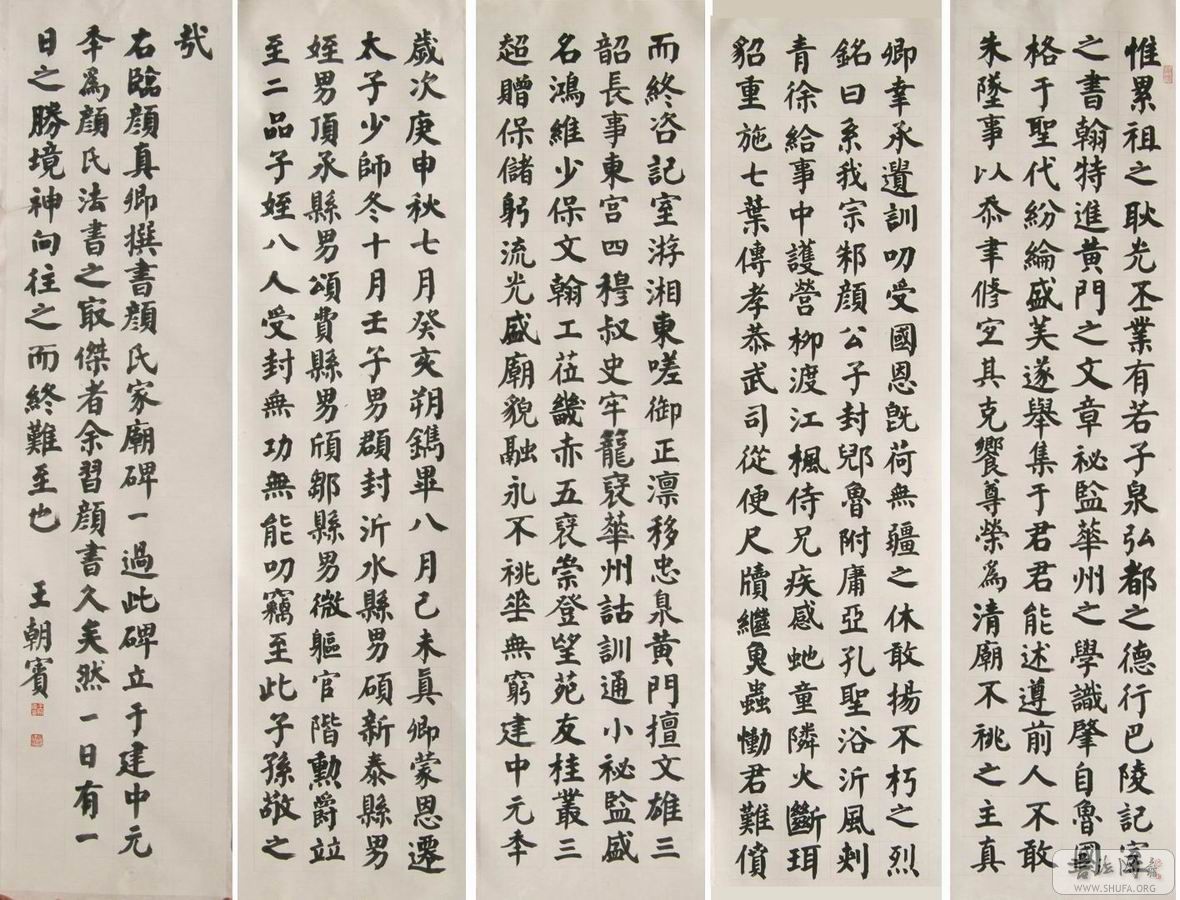 惟累祖之耿光丕業有若子泉弘都之德行巴陵記室
之書翰特進黄門之文章祕監華州之學識肇自魯國
格于聖代紛綸盛美遂舉集于君君能述遵前人不敢
失墜事以恭聿修宜其克饗尊榮為清廟不祧之主真
卿幸承遺訓叨受國恩既荷無疆之休敢揚不朽之烈
銘曰系我宗邾顔公子封郳魯附庸亞孔聖浴沂風剌
青徐給事中護營柳渡江楓侍兄疾感虵童隣火斷珥
貂重施七葉傳孝恭武司從便尺牘繼奐蟲慟君難償
而終咨記室游湘東嗟御正凛移忠泉黄門擅文雄三
韶長事東宫四穆叔史牢籠裒華州詁訓通小祕監盛
名鴻維少保文翰工莅畿赤五裒崇登望苑友桂叢三
超贈保儲躬流光盛廟貌融永不祧垂無窮建中元秊
歲次庚申秋七月癸亥朔鐫畢八月己未真卿蒙恩遷
太子少師冬十月壬子男頵封沂水縣男碩新泰縣男
姪男頂承縣男頌費縣男頎鄒縣男微軀官階勳爵竝
至二品子姪八人受封無功無能叨竊至此子孫敬之
㦲
右臨顔真卿撰書顔氏家廟碑一過此碑立于建中元
秊為顔氏法書之冣傑者余習顔書久矣然一日有一
日之勝境神向往之而終難至也 王朝賓
WWW.SHUFA.ORG